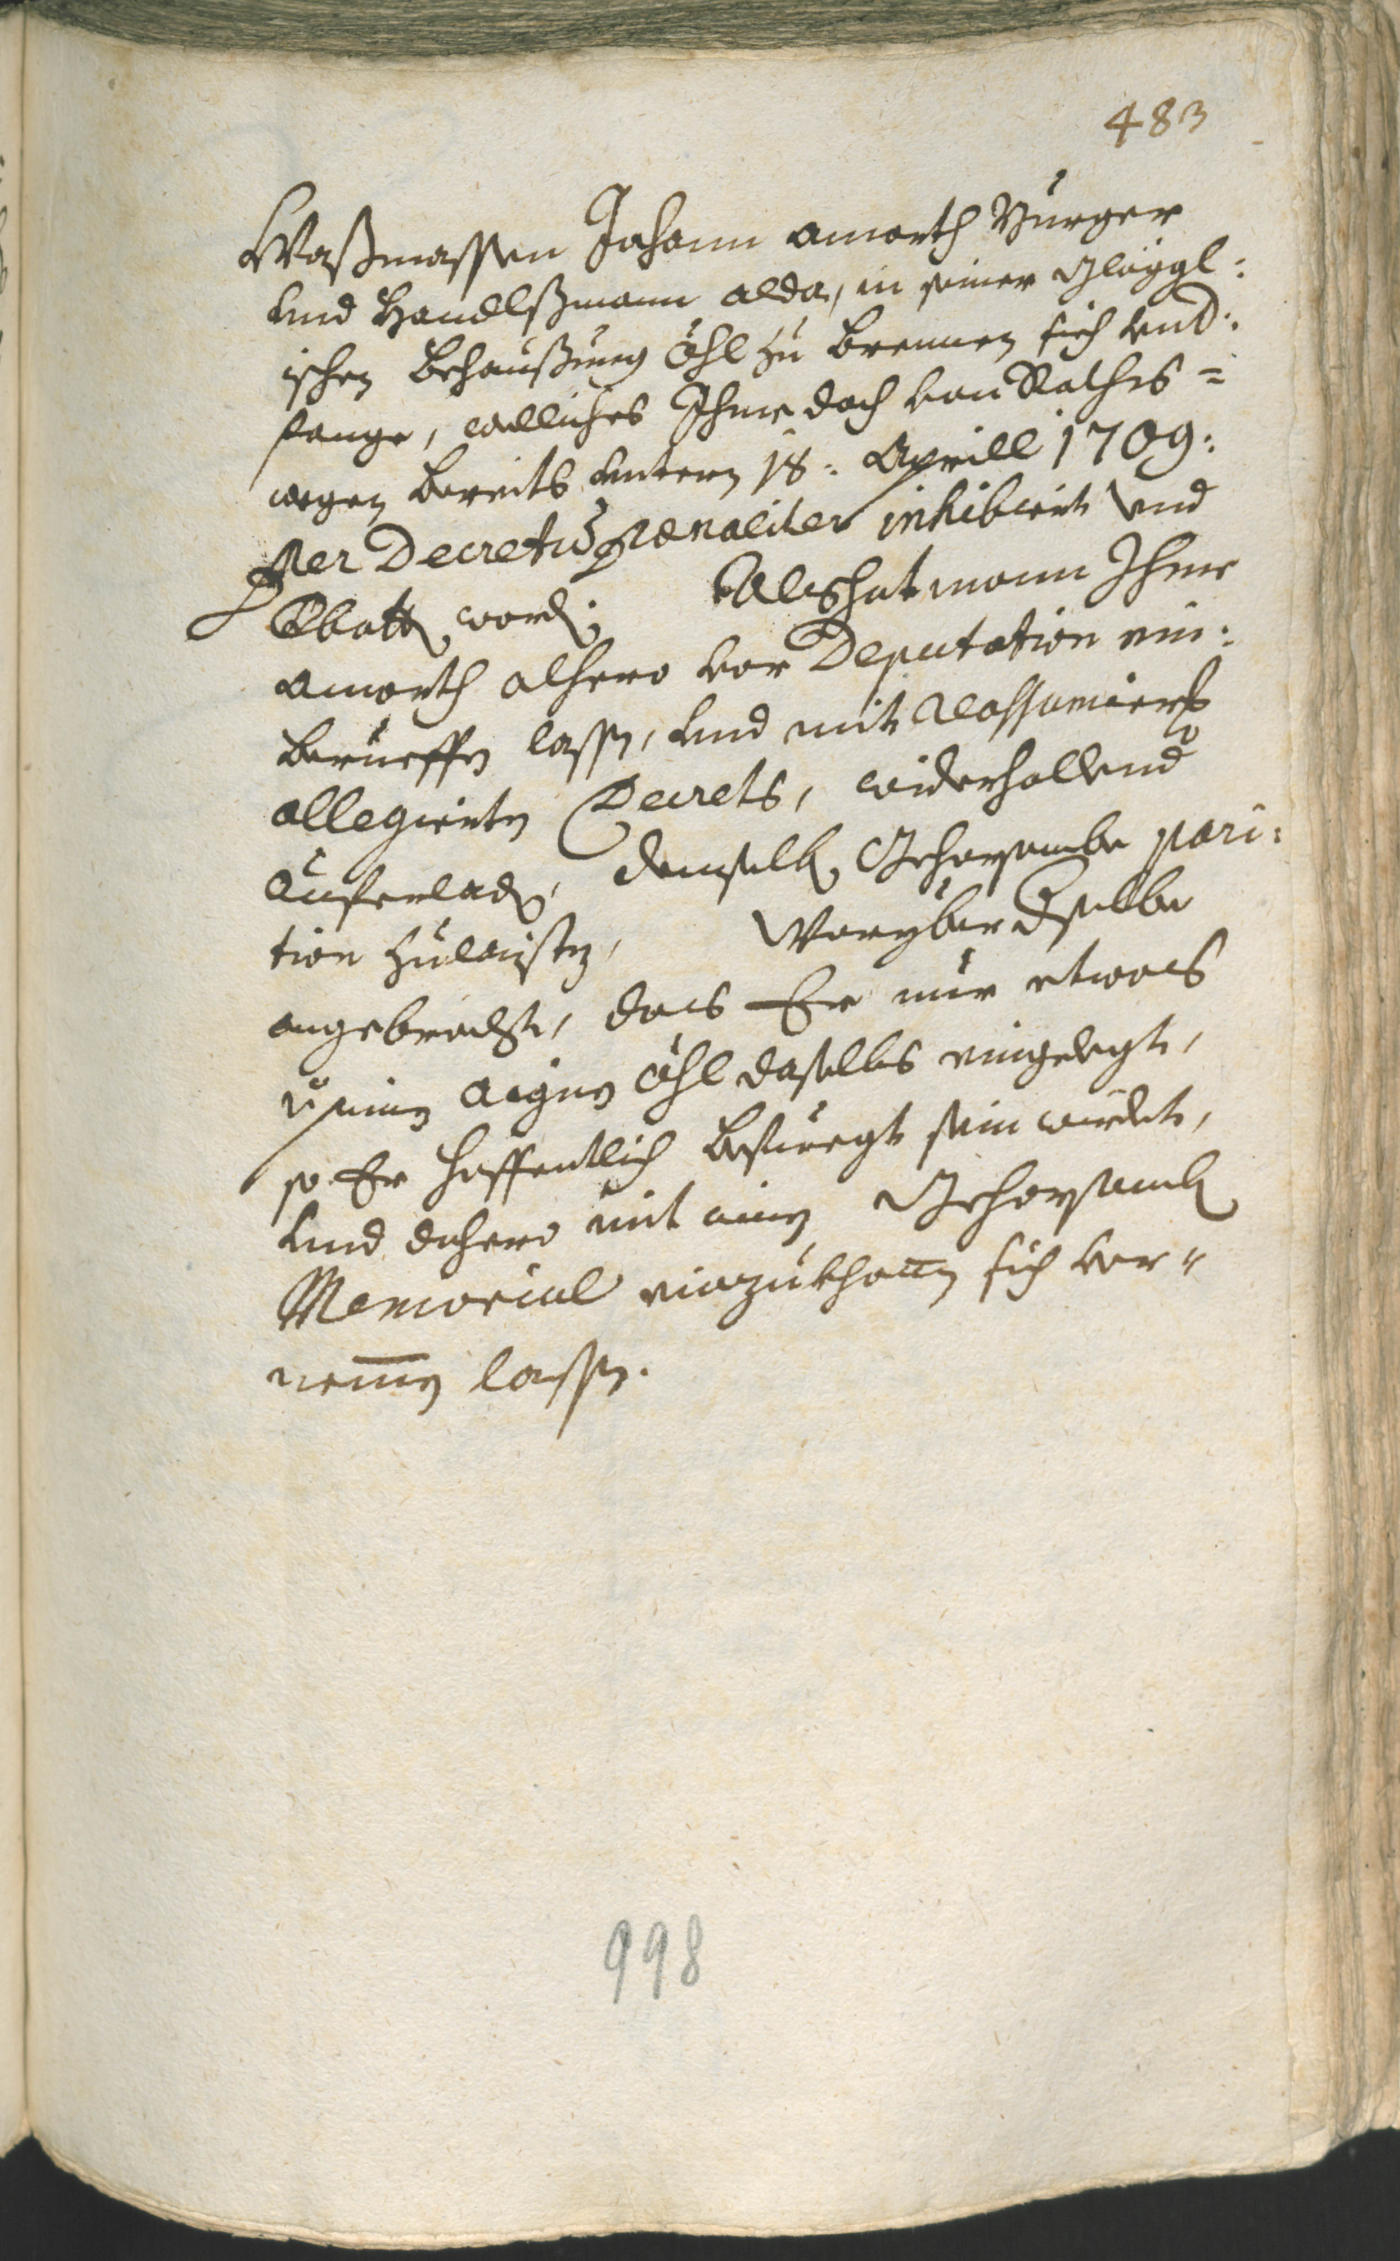 483
Waßmassen Johann amorth Burger
und Handlßmann alda, in seiner Glöggl:
ischen Behaußung Öhl zu brennen sich und:
fange, welliches Ihme doch von Raths=
wegen bereits untern 18: Aprill 1709:
per Decretum poenaliter inhibiert und
worden. Als hat mann Ihme
amorth alhero vor Deputation ein:
berueffen lassen, und mit Reassumierung
allegierten Decrets, widerhollend
auferladen, demselben Gehorsambe pari:
tion zulaisten, Woryber dselbe
angebracht, das Er nur etwas
wenig aignes Öhl daselbs eingelegt,
so Er hoffentlich befuegt sein würdet,
und dahero mit ainem Gehorsamben
Memorial einzukhomen sich ver=
nemen lassen.
998